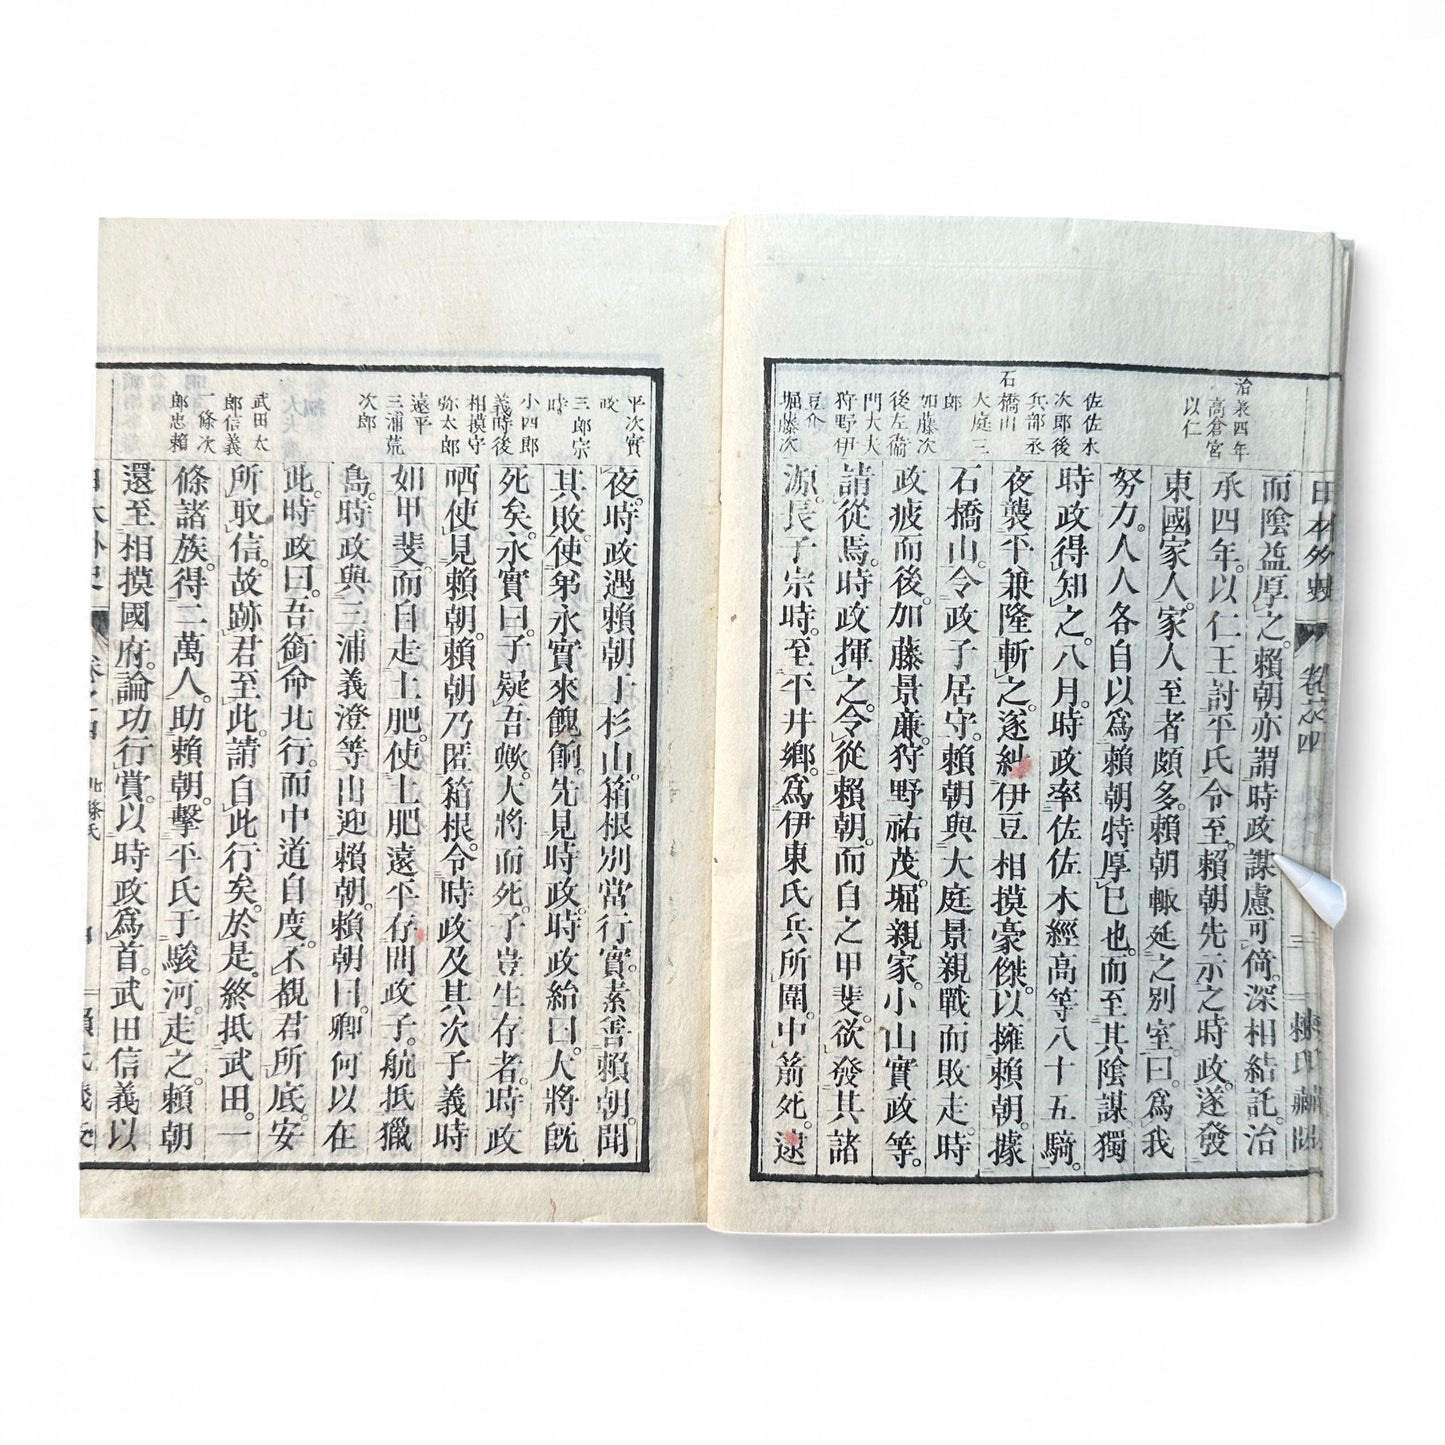 日本外史
卷之四
頼氏藏版
治承四年
高倉宮
以仁
佐佐木
次郎後
兵部丞
石橋山
大庭三
郎
加藤次
後左衞
門大夫
狩野伊
豆介
堀藤次
而陰益厚之。賴朝亦謂時政謀慮可倚。深相結託。治
承四年。以仁王討平氏令至。賴朝先示之時政。遂發
東國家人。家人至者頗多。賴朝輙延之別室。曰。爲我
努力。人人各自以爲賴朝特厚已也。而至其陰謀獨
時政得知之。八月。時政率佐佐木經高等八十五騎。
夜襲平兼隆斬之。遂糾伊豆相摸豪傑。以擁賴朝。據
石橋山。令政子居守。賴朝與大庭景親戰而敗走。時
政疲而後。加藤景廉。狩野祐茂。堀親家。小山實政等。
請從焉。時政揮之。令從賴朝。而自之甲斐。欲發其諸
源。長子宗時。至平井鄕。爲伊東氏兵所圍。中箭死。逮
平次實
政
三郎宗
時
小四郎
義時後
相摸守
弥太郎
遠平
三浦荒
次郎
武田太
郎信義
一條次
郎忠賴
夜。時政遇賴朝于杉山。箱根別當行實。素善賴朝。聞
其敗。使弟永實來餽餉。先見時政。時政紿曰。大將旣
死矣。永實曰。子疑吾歟。大將而死。子豈生存者。時政
哂使見賴朝。賴朝乃匿箱根。令時政及其次子義時
如甲斐。而自走土肥。使土肥遠平存問政子。航抵獵
島。時政與三浦義澄等出迎賴朝。賴朝曰。卿何以在
此。時政曰。吾銜命北行。而中道自度。不覩君所底。安
所取信。故跡君至此。請自此行矣。於是。終抵武田。一
條諸族。得二萬人。助賴朝。擊平氏于駿河。走之。賴朝
還至相摸國府。論功行賞。以時政爲首。武田信義以
日本外史
卷之四
北條氏